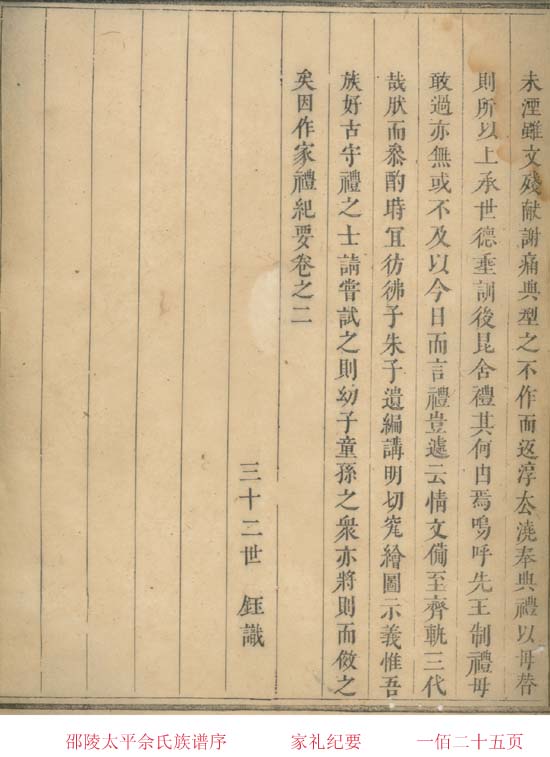 未湮雖文殘献謝痛典型之不作而返淳厺澆奉典禮以毋替
則所以上承世德垂訓後昆舍禮其何由焉嗚呼先王制禮毋
敢過亦無或不及以今日而言禮豈遽云情文備至齊軌三代
哉肰而叅酌時宜彷彿子朱子遺編講明切究繪圖示義惟吾
族好古守禮之士請嘗試之則幼子童孫之衆亦將則而倣之
矣因作家禮紀要卷之二
三十二世 鈺識
邵陵太平余氏族谱序 家礼纪要 一佰二十五页